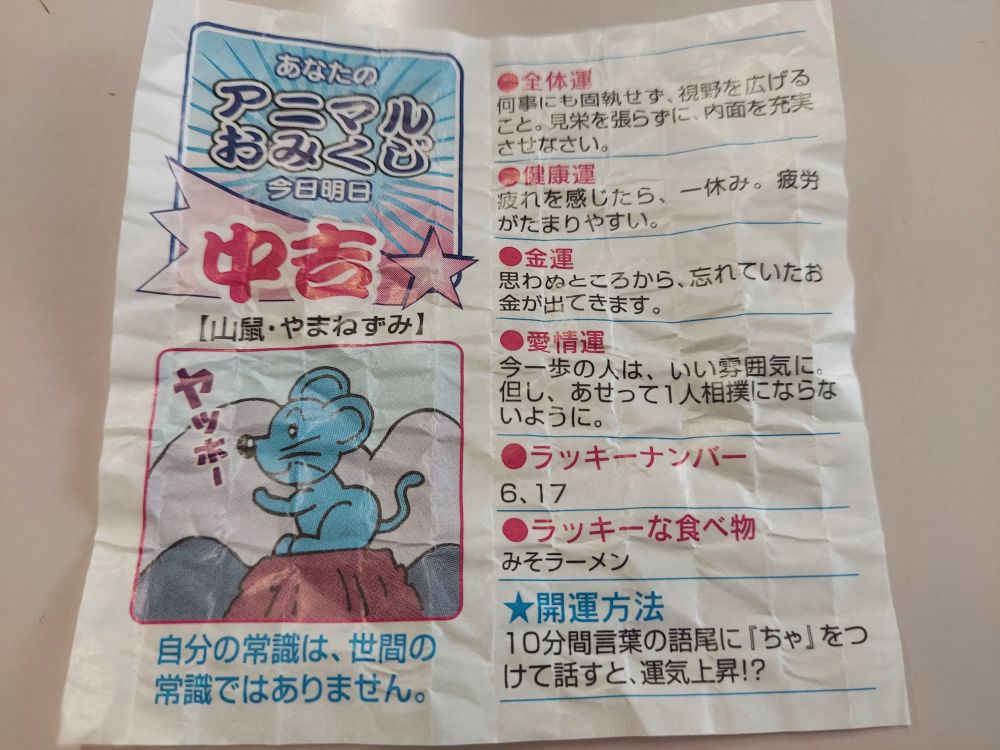 あなたの
アニマル
おみくじ
今日明日
中吉
【山鼠・やまねずみ】
ヤッホー
自分の常識は、世間の
常識ではありません。
●全体運
何事にも固執せず、視野を広げる
こと。見栄を張らずに、内面を充実
させなさい。
●健康運
疲れを感じたら、一休み。疲労
がたまりやすい。
●金運
思わぬところから、忘れていたお
金が出てきます。
●愛情運
今一歩の人は、いい雰囲気に。
但し、あせって1人相撲にならな
いように。
●ラッキーナンバー
6、17
●ラッキーな食べ物
みそラーメン
★開運方法
10分間言葉の語尾に『ちゃ』をつ
けて話すと、運気上昇!?